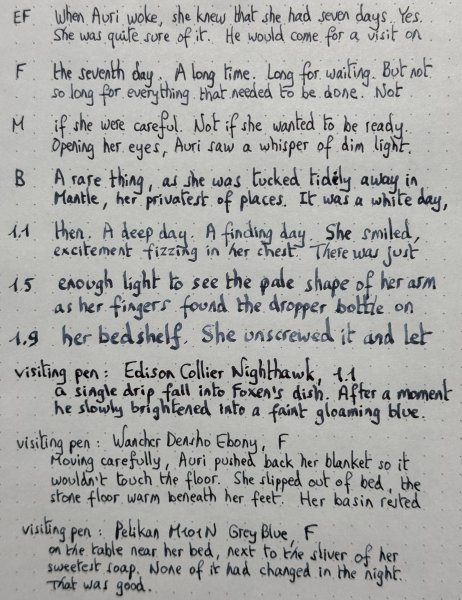 EF When Auri woke, she knew that she had seven days. Yes.
She was quite sure of it. He would come for a visit on
F the seventh day. A long time. Long for waiting. But not
so long for everything that needed to be done. Not
M if she were careful. Not if she wanted to be ready.
Opening her eyes, Auri saw a whisper of dim light.
B A rare thing, as she was tucked tidely away in
Mantle, her privatest of places. It was a white day,
1.1 then. A deep day. A finding day. She smiled,
excitement fizzing in her chest. There was just
1.5 enough light to see the pale shape of her arm
as her fingers found the dropper bottle on
1.9 her bedshelf. She unscrewed it and let
visiting pen: Edison Collier Nighthawk, 1.1
a single drip fall into Foxen's dish. After a moment
he slowly brightened into a faint gloaming blue.
visiting pen: Wancher Densho Ebony, F
Moving carefully, Auri pushed back her blanket so it
wouldn't touch the floor. She slipped out of bed, the
stone floor warm beneath her feet. Her basin rested
visiting pen: Pelikan M101N Grey Blue, F
on the table near her bed, next to the sliver of her
sweetest soap. None of it had changed in the night.
That was good.